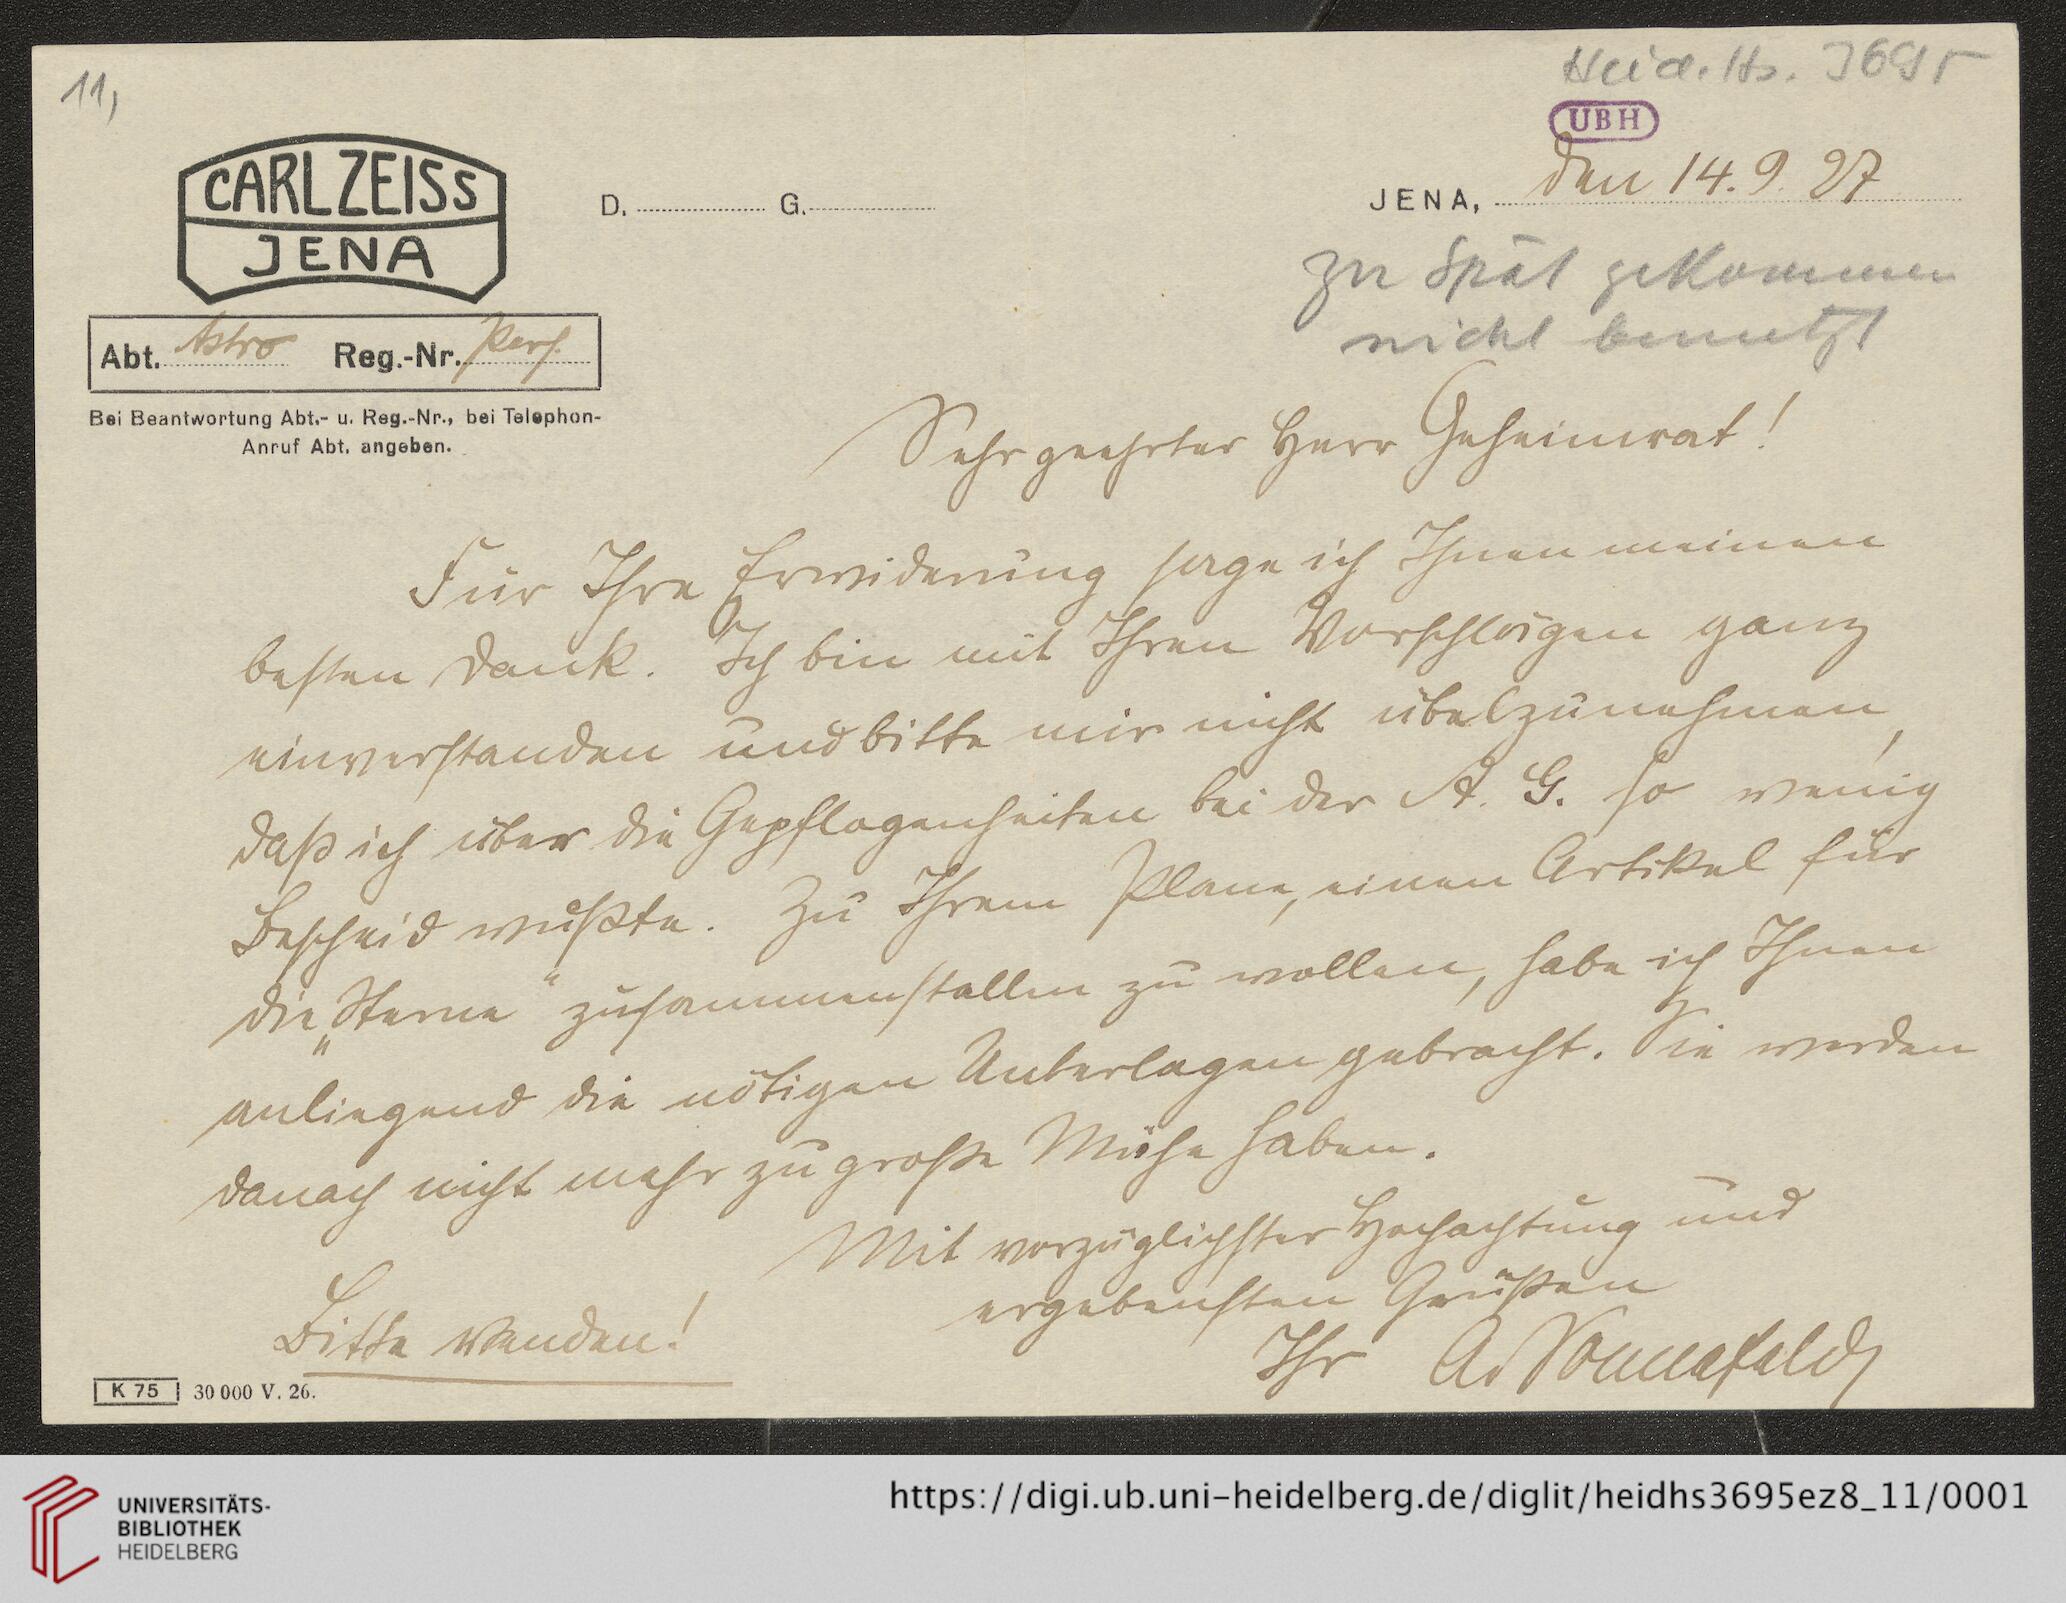 11,
Heid. Hs. 3695
UBH
CARL ZEISS
JENA
D. G.
JENA, den 14. 9. 27
zu spät gekommen
nicht benutzt
Abt. Astro Reg.-Nr. Pers.
Bei Beantwortung Abt.- u. Reg.-Nr., bei Telephon-
Anruf Abt. angeben.
Sehr geehrter Herr Geheimrat!
Für Ihre Erwiderung sage ich Ihnen meinen
besten Dank. Ich bin mit Ihren Vorschlägen ganz
einverstanden und bitte mir nicht übelzunehmen,
daß ich über die Gepflogenheiten bei der A. G. so wenig
Bescheid wußte. Zu Ihrem Plane, einen Artikel für
die „Sterne“ zusammenstellen zu wollen, habe ich Ihnen
anliegend die nötigen Unterlagen gebracht. Sie werden
danach nicht mehr zu große Mühe haben.
Mit vorzüglichster Hochachtung und
ergebensten Grüßen
Ihr A. Sonnefeld
Bitte wenden!
K 75 30 000 V. 26.
UNIVERSITÄTS-
BIBLIOTHEK
HEIDELBERG
https://digi.ub.uni-heidelberg.de/diglit/heidhs3695ez8_11/0001